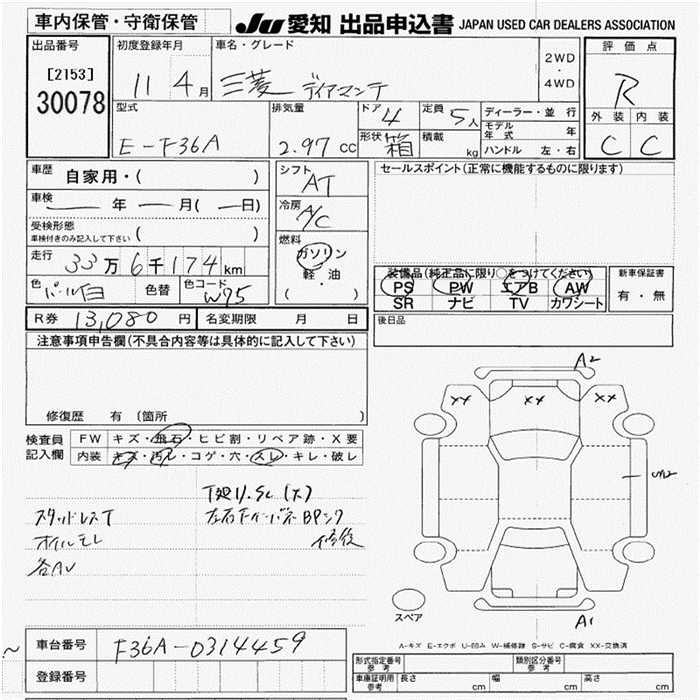 車内保管・守衛保管
JU 愛知 出品申込書 JAPAN USED CAR DEALERS ASSOCIATION
出品番号
[2153]
30078
初度登録年月
11 4月
車名・グレード
三菱 ディアマンテ
2WD
・
4WD
評価点
R
外装 内装
C C
型式
E-F36A
排気量
2.97 cc
ドア 4
形状 箱
定員 5人
積載 kg
ディーラー・並行
モデル年式 年
ハンドル 左・右
車歴 自家用・( )
車検 ― 年 ― 月( ― 日)
受検形態
車検付きのみ記入して下さい ( )
走行 33万6千174km
色 パール白 色替 色コード W75
シフト AT
冷房 A/C
燃料
ガソリン
軽・油
( )
セールスポイント(正常に機能するものに限ります)
装備品(純正品に限り○をつけてください)
PS PW エアB AW
SR ナビ TV カワシート
新車保証書
有・無
R券 13,080円 名変期限 月 日
後日品
注意事項申告欄(不具合内容等は具体的に記入して下さい)
修復歴 有 (箇所 )
検査員
記入欄
FW キズ・飛石・ヒビ割・リペア跡・X要
内装 キズ・汚レ・コゲ・穴・スレ・キレ・破レ
スタッドレスT
オイルモレ
各AU
修復
A2
XX XX XX
A1
スペア
A-キズ E-エクボ U-凹み W-補修跡 S-サビ C-腐食 XX-交換済
車台番号 F36A-0314459
登録番号
形式指定番号 参考
類別区分番号 参考
車庫証明用 参考 長さ cm 幅 cm 高さ cm